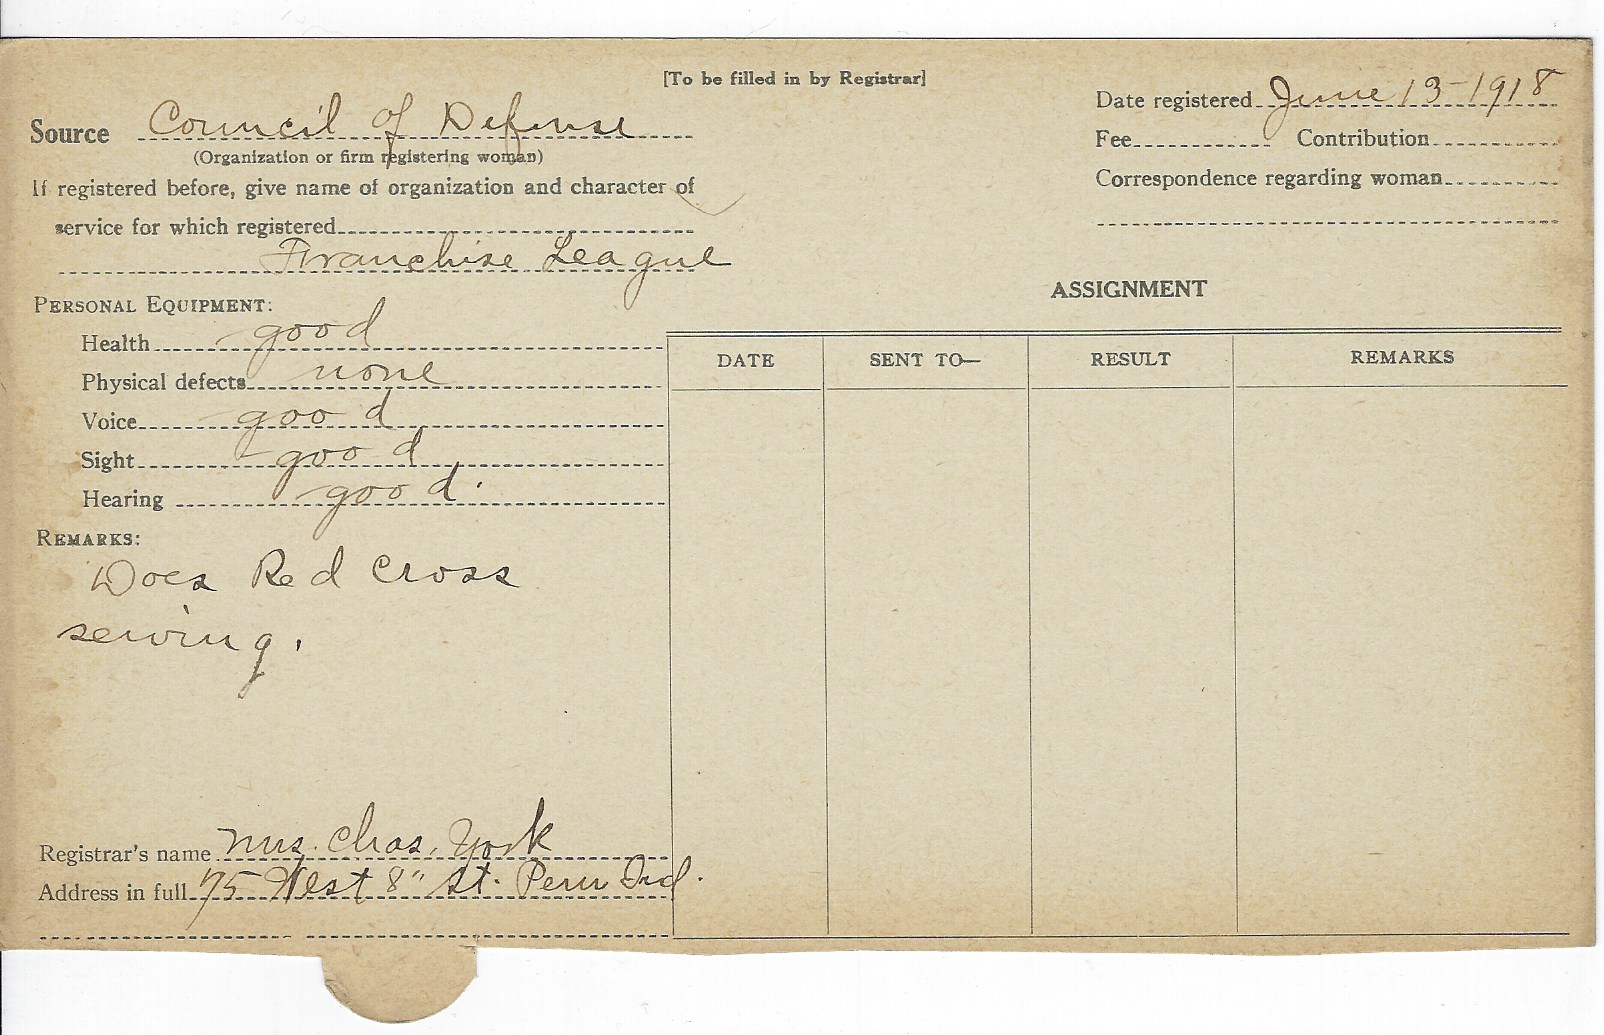 [To be filled in by Registrar]
Source Council of Defense
(Organization or firm registering woman)
If registered before, give name of organization and character of
service for which registered
Franchise League
PERSONAL EQUIPMENT:
Health good
Physical defects none
Voice good
Sight good
Hearing good.
REMARKS:
Does Red Cross
sewing.
Registrar's name Mrs. Chas. York
Address in full 75 West 8" St. Peru Ind.
Date registered June 13-1918
Fee Contribution
Correspondence regarding woman
ASSIGNMENT
DATE SENT TO— RESULT REMARKS